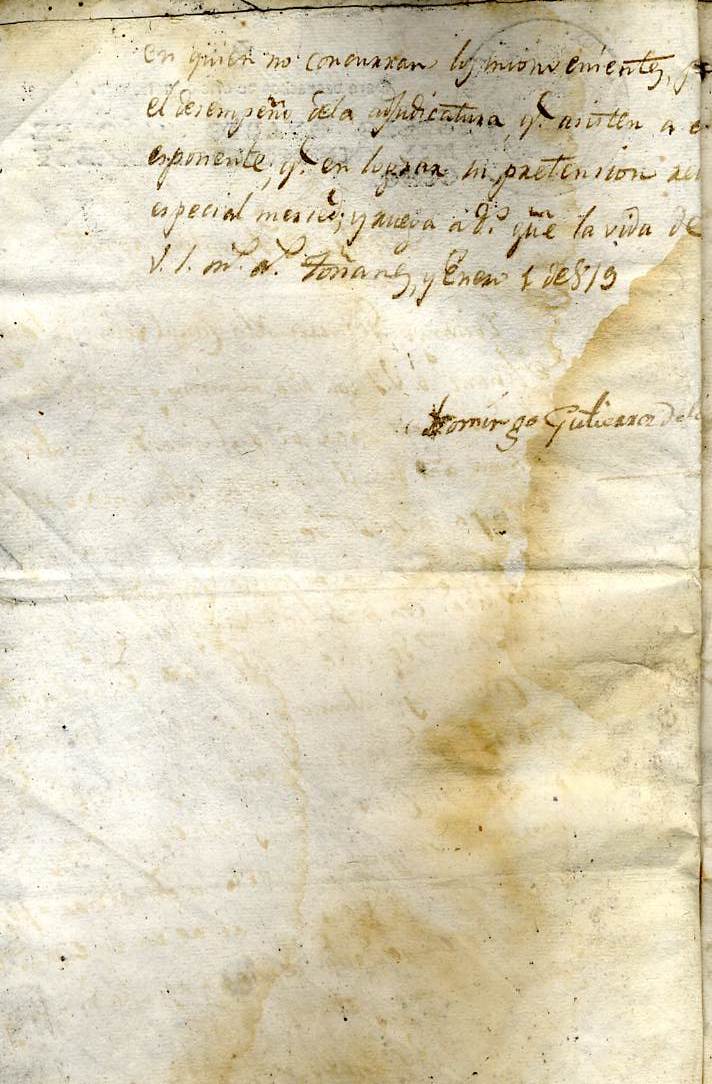 en quien no concurran los inconvenientes, p
el desempeño dela adjudicatura, qe. asisten a e
esponente, qe. en lograr su pretension rec
especial merced; y ruega a Ds. gue. la vida de
V. S. ms. as. Toñanes, y Enero 1 de 819
Domingo Gutierrez dela